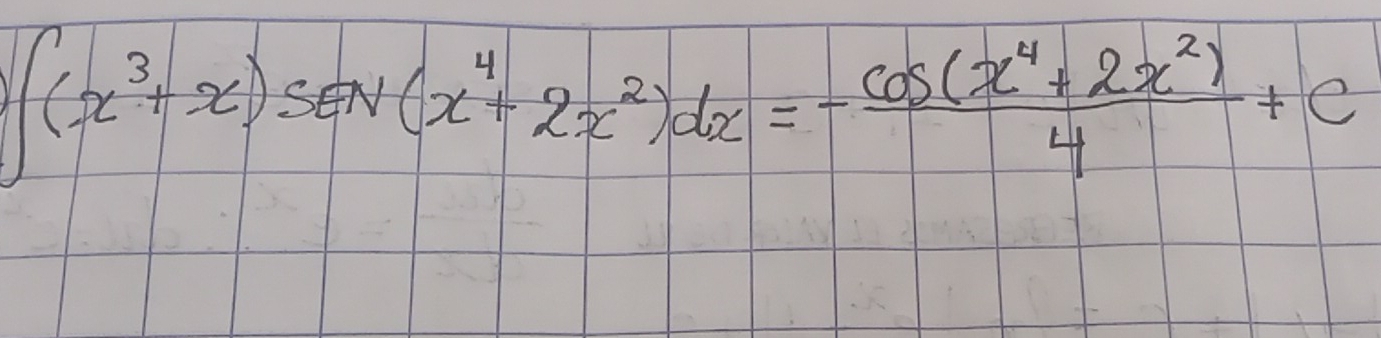 ∫(x³ + x) SEN(x⁴ + 2x²)dx = - cos(x⁴ + 2x²)/4 + C